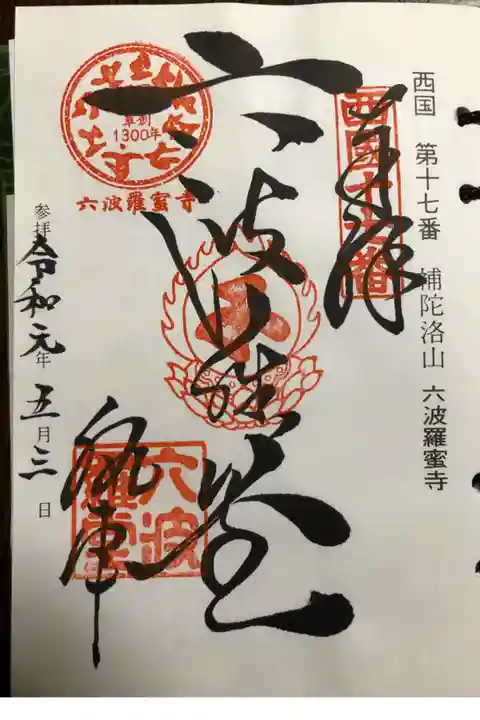 西国 第十七番 補陀洛山 六波羅蜜寺
奉拝
西國十七番
六波羅堂
草創
1300年
六波羅蜜寺
六波羅蜜
参拝 令和元年五月三日